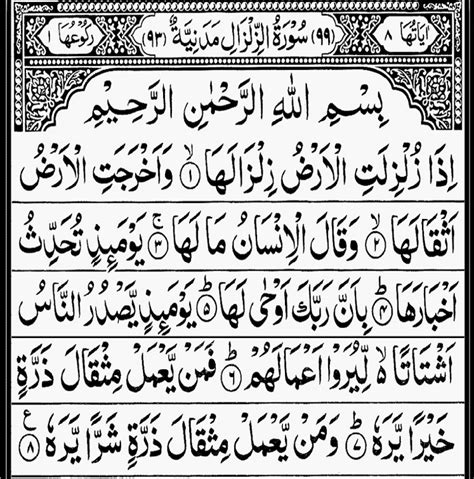 اٰیَاتُهَا ٨ (٩٩) سُوْرَةُ الزِّلْزَالِ مَدَنِيَّةٌ (٩٣) رُكُوْعُهَا ١
بِسْمِ اللّٰهِ الرَّحْمٰنِ الرَّحِيْمِ
اِذَا زُلْزِلَتِ الْاَرْضُ زِلْزَالَهَا ۙ﴿١﴾ وَاَخْرَجَتِ الْاَرْضُ
اَثْقَالَهَا ۙ﴿٢﴾ وَقَالَ الْاِنْسَانُ مَا لَهَا ۚ﴿٣﴾ يَوْمَئِذٍ تُحَدِّثُ
اَخْبَارَهَا ؕ﴿٤﴾ بِاَنَّ رَبَّكَ اَوْحٰى لَهَا ؕ﴿٥﴾ يَوْمَئِذٍ يَّصْدُرُ النَّاسُ
اَشْتَاتًا ۙ۬ لِّيُرَوْا اَعْمَالَهُمْ ؕ﴿٦﴾ فَمَنْ يَّعْمَلْ مِثْقَالَ ذَرَّةٍ
خَيْرًا يَّرَهٗ ؕ﴿٧﴾ وَمَنْ يَّعْمَلْ مِثْقَالَ ذَرَّةٍ شَرًّا يَّرَهٗ ﴿٨﴾ ع